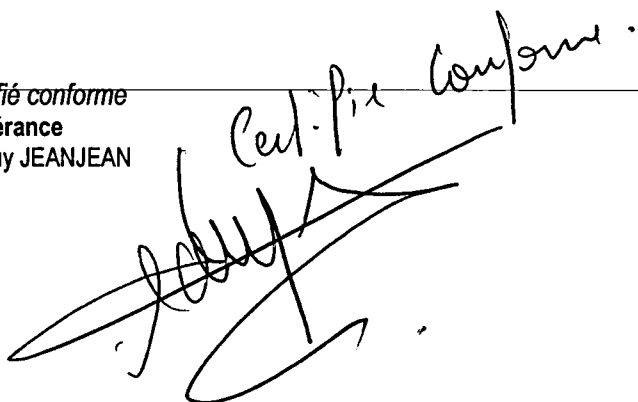 fié conforme
érance
y JEANJEAN
Certifié Conforme.